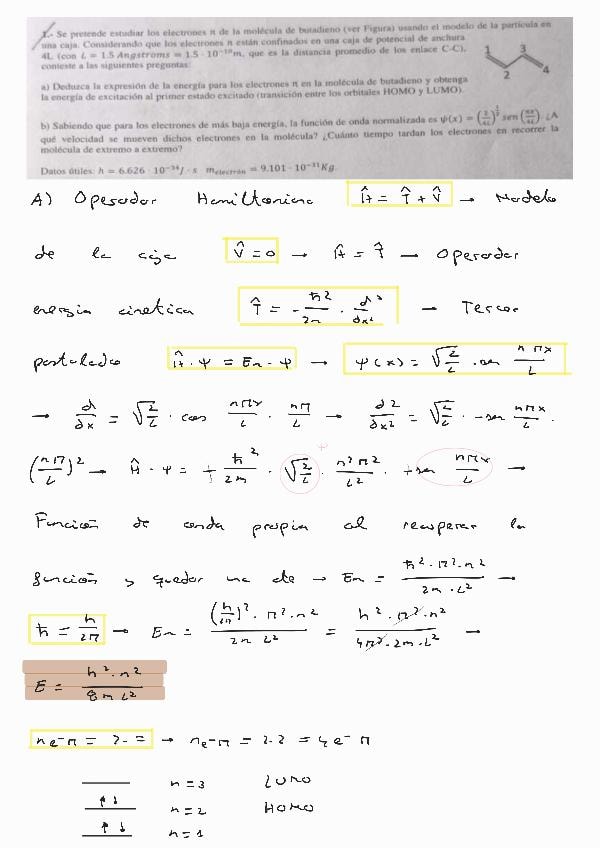 1.- Se pretende estudiar los electrones π de la molécula de butadieno (ver Figura) usando el modelo de la partícula en
una caja. Considerando que los electrones π están confinados en una caja de potencial de anchura
4L (con L = 1.5 Angstroms = 1.5 · 10⁻¹⁰m, que es la distancia promedio de los enlace C-C),
conteste a las siguientes preguntas:
1 3
2 4
a) Deduzca la expresión de la energía para los electrones π en la molécula de butadieno y obtenga
la energía de excitación al primer estado excitado (transición entre los orbitales HOMO y LUMO).
b) Sabiendo que para los electrones de más baja energía, la función de onda normalizada es ψ(x) = (2/4L)^(1/2) sen (πx/4L). ¿A
qué velocidad se mueven dichos electrones en la molécula? ¿Cuánto tiempo tardan los electrones en recorrer la
molécula de extremo a extremo?
Datos útiles: h = 6.626 · 10⁻³⁴J · s m_electrón = 9.101 · 10⁻³¹Kg.
A) Operador Hamiltoniano Ĥ = T̂ + V̂ → Modelo
de la caja V̂ = 0 → Ĥ = T̂ → Operador
energía cinética T̂ = - ħ²/2m · d²/dx² → Tercer
postulado Ĥ · Ψ = En · Ψ → Ψ(x) = √2/L · sen nπx/L
→ d/dx = √2/L · cos nπx/L · nπ/L → d²/dx² = √2/L · -sen nπx/L ·
(nπ/L)² → Ĥ · Ψ = + ħ²/2m · √2/L · n²π²/L² · +sen nπx/L →
Función de onda propia al recuperar la
función y quedar una cte → En = ħ² · π² · n² / 2m · L² →
ħ = h/2π → En = (h/2π)² · π² · n² / 2m L² = h² · π² · n² / 4π² · 2m · L² →
E = h² · n² / 8mL²
→ ne⁻π = 2·2 = 4e⁻ π
n=3 LUMO
n=2 HOMO
n=1